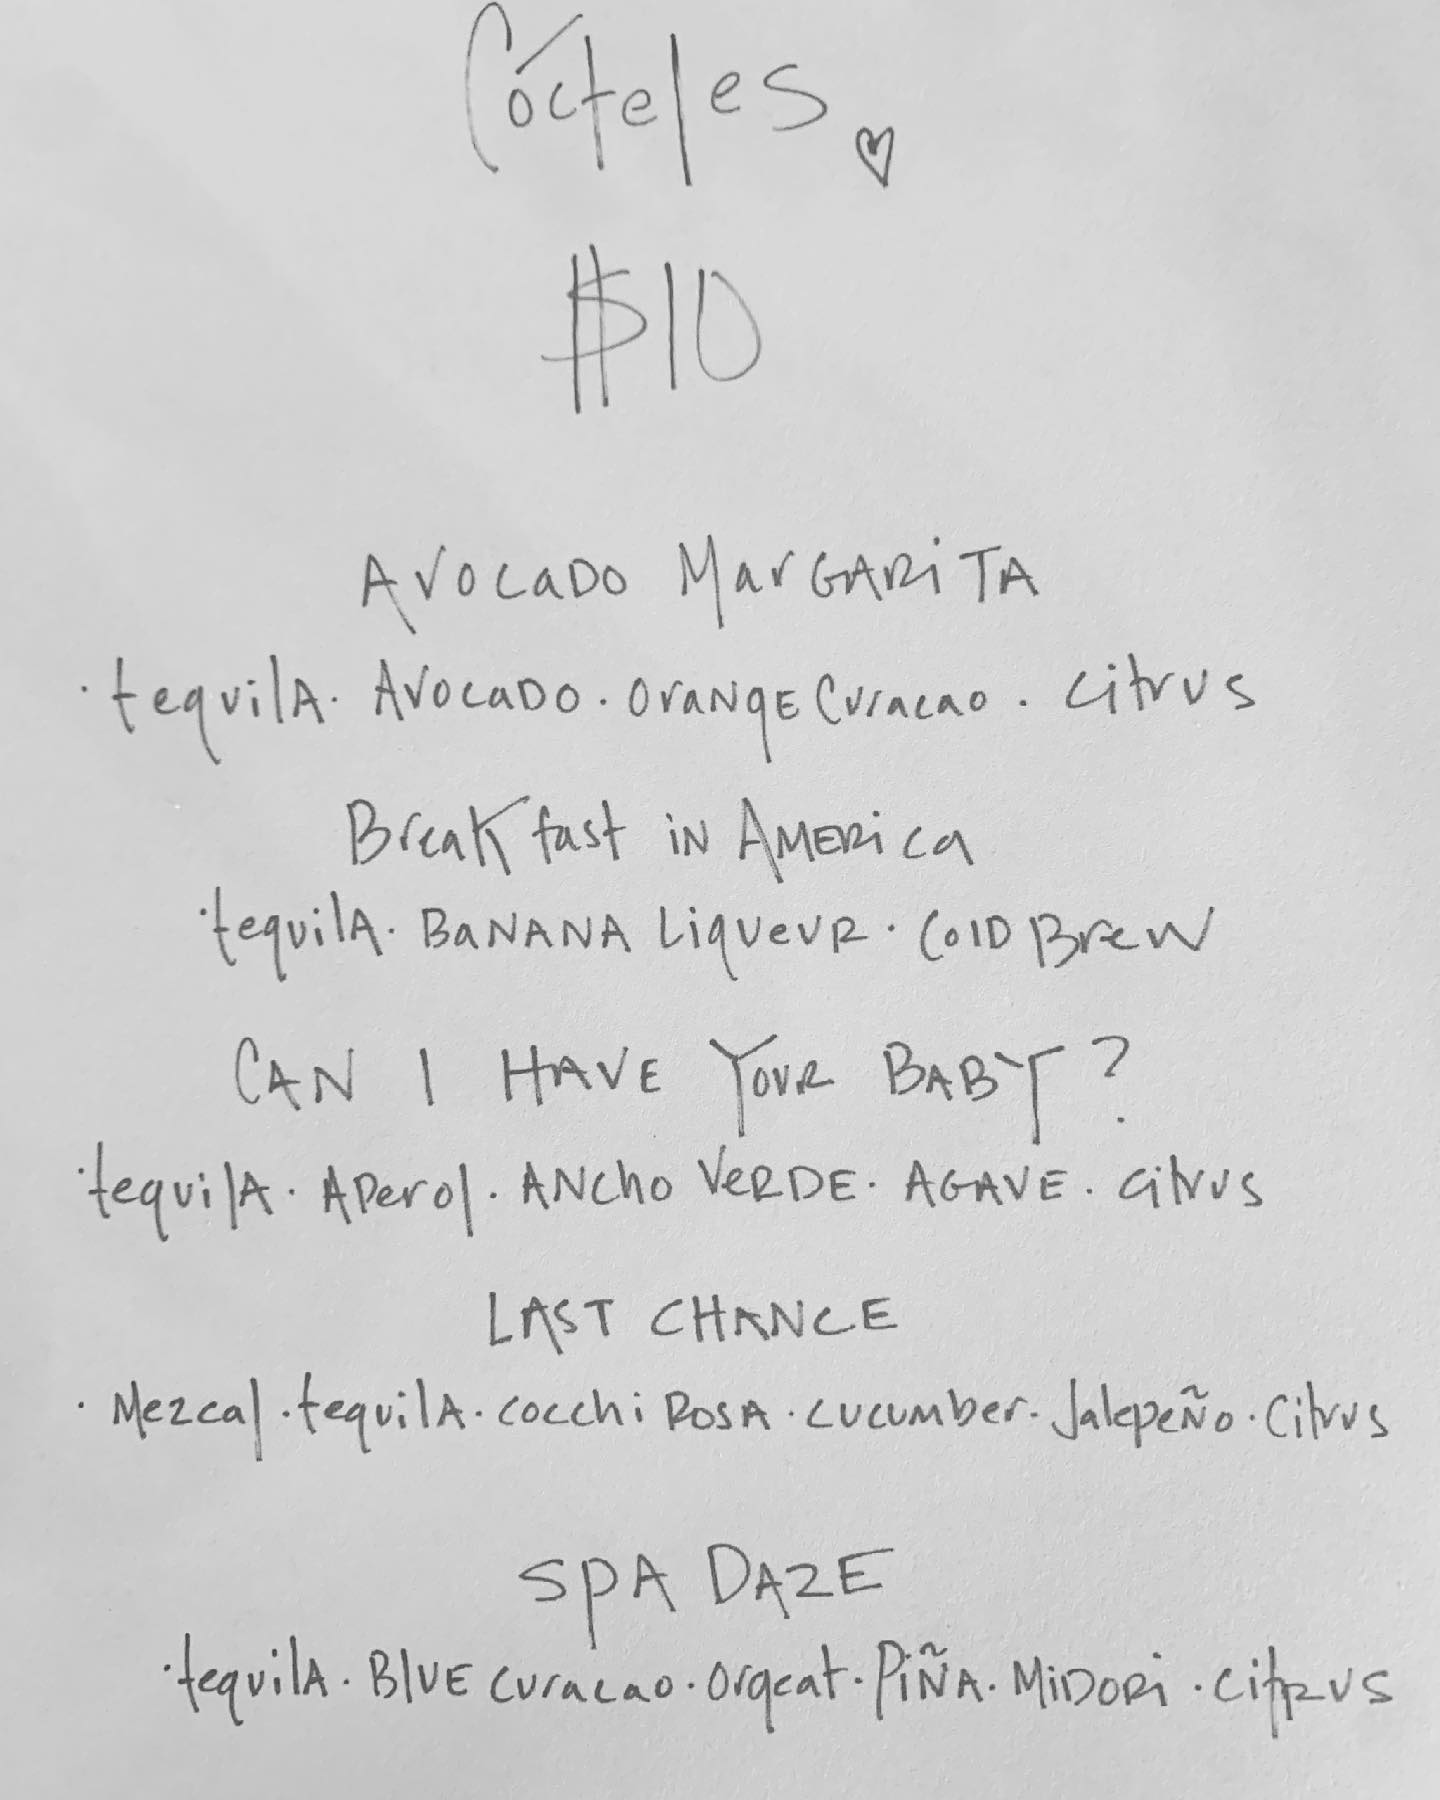 Cócteles
$10
Avocado Margarita
·tequila· Avocado · Orange Curacao · citrus
Breakfast in America
·tequila· Banana Liqueur · Cold Brew
CAN I HAVE YOUR BABY?
·tequila · Aperol · Ancho Verde · Agave · citrus
LAST CHANCE
· Mezcal · tequila · cocchi Rosa · cucumber · Jalepeño · Citrus
SPA DAZE
·tequila · Blue curacao · Orgeat · Piña · Midori · citrus